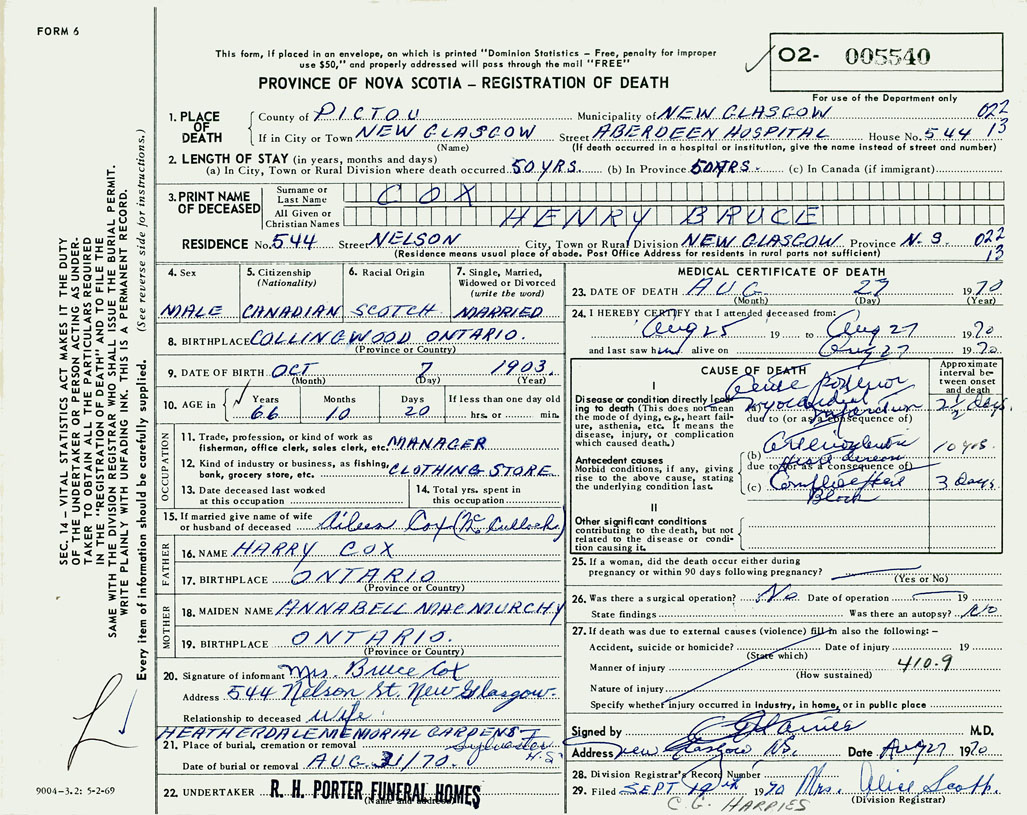 FORM 6
This form, if placed in an envelope, on which is printed "Dominion Statistics – Free, penalty for improper
use $50," and properly addressed will pass through the mail "FREE"
PROVINCE OF NOVA SCOTIA – REGISTRATION OF DEATH
O2- 005540
For use of the Department only
1. PLACE OF DEATH
County of PICTOU Municipality of NEW GLASGOW 022
If in City or Town NEW GLASGOW Street ABERDEEN HOSPITAL House No. 544 13
(Name) (If death occurred in a hospital or institution, give the name instead of street and number)
2. LENGTH OF STAY (in years, months and days)
(a) In City, Town or Rural Division where death occurred 50 YRS. (b) In Province 50 YRS. (c) In Canada (if immigrant)
3. PRINT NAME OF DECEASED
Surname or Last Name COX
All Given or Christian Names HENRY BRUCE
RESIDENCE No. 544 Street NELSON City, Town or Rural Division NEW GLASGOW Province N. S. 022
(Residence means usual place of abode. Post Office Address for residents in rural parts not sufficient) 13
4. Sex MALE
5. Citizenship (Nationality) CANADIAN
6. Racial Origin SCOTCH
7. Single, Married, Widowed or Divorced (write the word) MARRIED
8. BIRTHPLACE COLLINGWOOD ONTARIO.
(Province or Country)
9. DATE OF BIRTH OCT 7 1903.
(Month) (Day) (Year)
10. AGE in Years Months Days If less than one day old
66 10 20 hrs. or min.
OCCUPATION
11. Trade, profession, or kind of work as
fisherman, office clerk, sales clerk, etc. MANAGER
12. Kind of industry or business, as fishing,
bank, grocery store, etc. CLOTHING STORE
13. Date deceased last worked
at this occupation
14. Total yrs. spent in
this occupation
15. If married give name of wife
or husband of deceased Aileen Cox (McCulloch)
FATHER
16. NAME HARRY COX
17. BIRTHPLACE ONTARIO
(Province or Country)
MOTHER
18. MAIDEN NAME ANNABELL MACMURCHY
19. BIRTHPLACE ONTARIO.
(Province or Country)
20. Signature of informant Mrs. Bruce Cox
Address 544 Nelson St. New Glasgow.
Relationship to deceased Wife
HEATHERDALE MEMORIAL GARDENS
21. Place of burial, cremation or removal Sylvester
N.S.
Date of burial or removal AUG. 31/70.
22. UNDERTAKER R. H. PORTER FUNERAL HOMES
(Name and address)
MEDICAL CERTIFICATE OF DEATH
23. DATE OF DEATH AUG 27 1970
(Month) (Day) (Year)
24. I HEREBY CERTIFY that I attended deceased from:
Aug 25 19 to Aug 27 1970
and last saw him alive on Aug 27 1970
CAUSE OF DEATH
Approximate interval between onset and death
I
Disease or condition directly leading to death (This does not mean
the mode of dying, e.g., heart failure, asthenia, etc. It means the
disease, injury, or complication
which caused death)
Acute Posterior
Myocardial
Infarction 2½ days.
due to (or as a consequence of)
Antecedent causes
Morbid conditions, if any, giving
rise to the above cause, stating
the underlying condition last.
(b) Arteriosclerotic
Heart disease 10 yrs.
due to (or as a consequence of)
(c) Complete Heart
Block 3 Days
II
Other significant conditions
contributing to the death, but not
related to the disease or condition causing it.
25. If a woman, did the death occur either during
pregnancy or within 90 days following pregnancy?
(Yes or No)
26. Was there a surgical operation? No Date of operation 19
State findings Was there an autopsy? No
27. If death was due to external causes (violence) fill in also the following:–
Accident, suicide or homicide? Date of injury 19
(State which)
Manner of injury 410.9
(How sustained)
Nature of injury
Specify whether injury occurred in industry, in home, or in public place
Signed by M.D.
Address New Glasgow N.S. Date Aug 27 1970
28. Division Registrar's Record Number
29. Filed SEPT 19th 1970 Mrs. Alice Scott.
(Division Registrar)
C. G. HARRIES
SEC. 14 – VITAL STATISTICS ACT MAKES IT THE DUTY
OF THE UNDERTAKER OR PERSON ACTING AS UNDERTAKER TO OBTAIN ALL THE PARTICULARS REQUIRED
IN THE "REGISTRATION OF DEATH" AND TO FILE THE
SAME WITH THE DIVISION REGISTRAR WHO SHALL ISSUE THE BURIAL PERMIT.
WRITE PLAINLY WITH UNFADING INK. THIS IS A PERMANENT RECORD.
Every item of information should be carefully supplied. (See reverse side for instructions.)
9004-3.2: 5-2-69